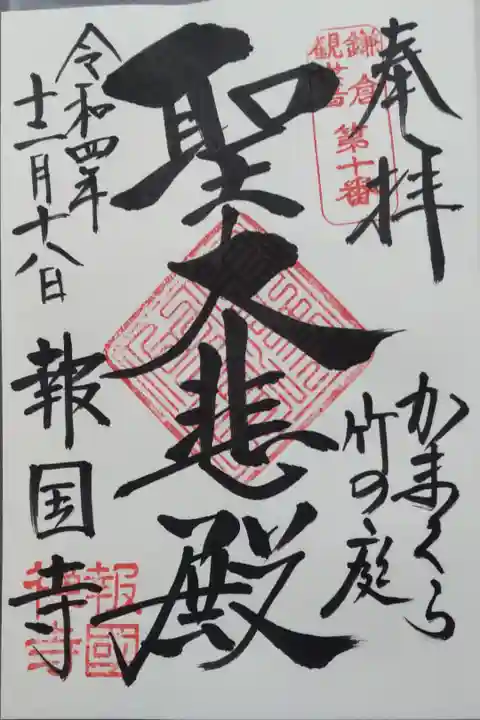 奉拝
鎌倉
観世音
第十番
かまくら
竹の庭
聖大悲殿
令和四年
十二月十八日
報国寺
報國
禅寺